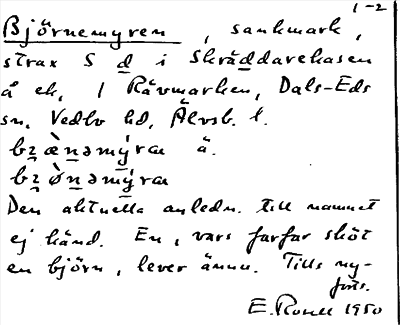 1-2
Björnemyren, sankmark,
strax S d i Skräddarehasen
å ek, i Rävmarken, Dals-Eds
sn, Vedbo hd, Älvsb. l.
bʒæ̀nəmýra ä.
bʒø̀nəmýra
Den aktuella anledn. till namnet
ej känd. En, vars farfar sköt
en björn, lever ännu. Tills ny-
förts.
E. 1950